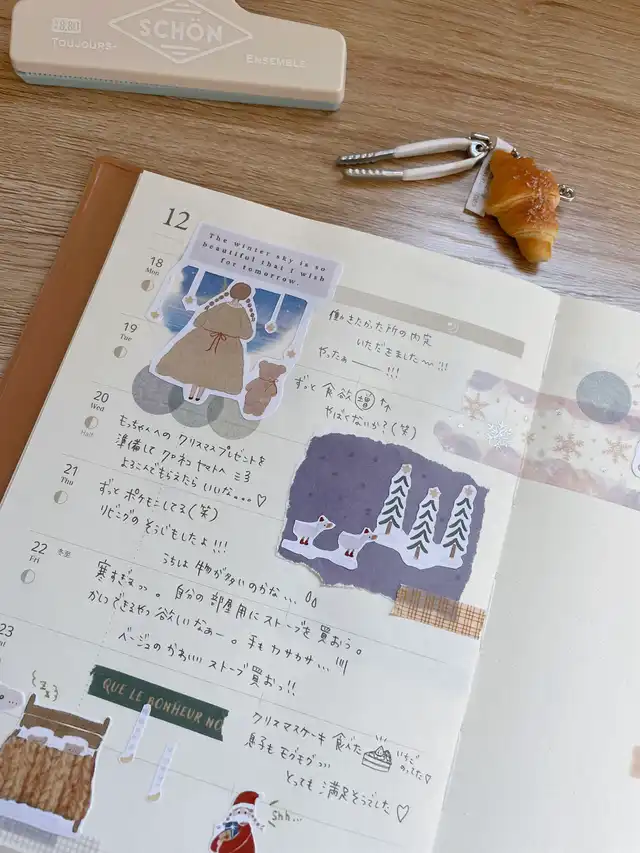 SCHÖN
TOUJOURS-
ENSEMBLE
12
The winter sky is so
beautiful that I wish
for tomorrow.
18
Mon
働きたかった所の内定
いただきました〜!!!
やったぁ━━!!!
19
Tue
ずっと 食欲 増 ↑↑
やばくないか?(笑)
20
Wed
Half
もっちゃんへの クリスマスプレゼントを
準備して クロネコ ヤマトへ
よろこんでもらえたら いいな。。。♡
21
Thu
ずっと ポケモンしてる(笑)
リビングの そうじもしたよ!!!
うちは 物が多いのかな...
22 冬至
Fri
寒すぎるっ。自分の 部屋用に ストーブを 買おう。
かしつできるやつ 欲しいなぁー。手も カサカサ...
ベージュの かわいい ストーブ 買おっ!!
23
QUE LE BONHEUR NO
クリスマスケーキ 食べた いちご
のってた♡
息子も モグモグっっ
とっても 満足そうでした♡
shh...